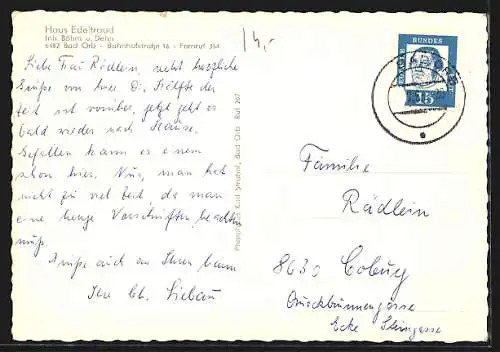 Haus Edeltraud
Inh. Böhm u. Dehn
6482 Bad Orb - Bahnhofstraße 16 - Fernruf 354
14,-
Liebe Frau Rädlein, recht herzliche
Grüße von hier. Die Hälfte der
Zeit ist vorüber, jetzt geht es
bald wieder nach Hause.
Gefallen kann es einem
schon hier. Nur, man hat
nicht zu viel Zeit, da man
eine Menge Vorschriften beachten
muß.
Grüße auch an Ihren
Ihre Ch. Siebau
Bad Orb Ruf 207
DEUTSCHE
BUNDES
15
Familie
Rädlein
8630 Coburg
Querckbrunnengasse
Ecke Steingasse